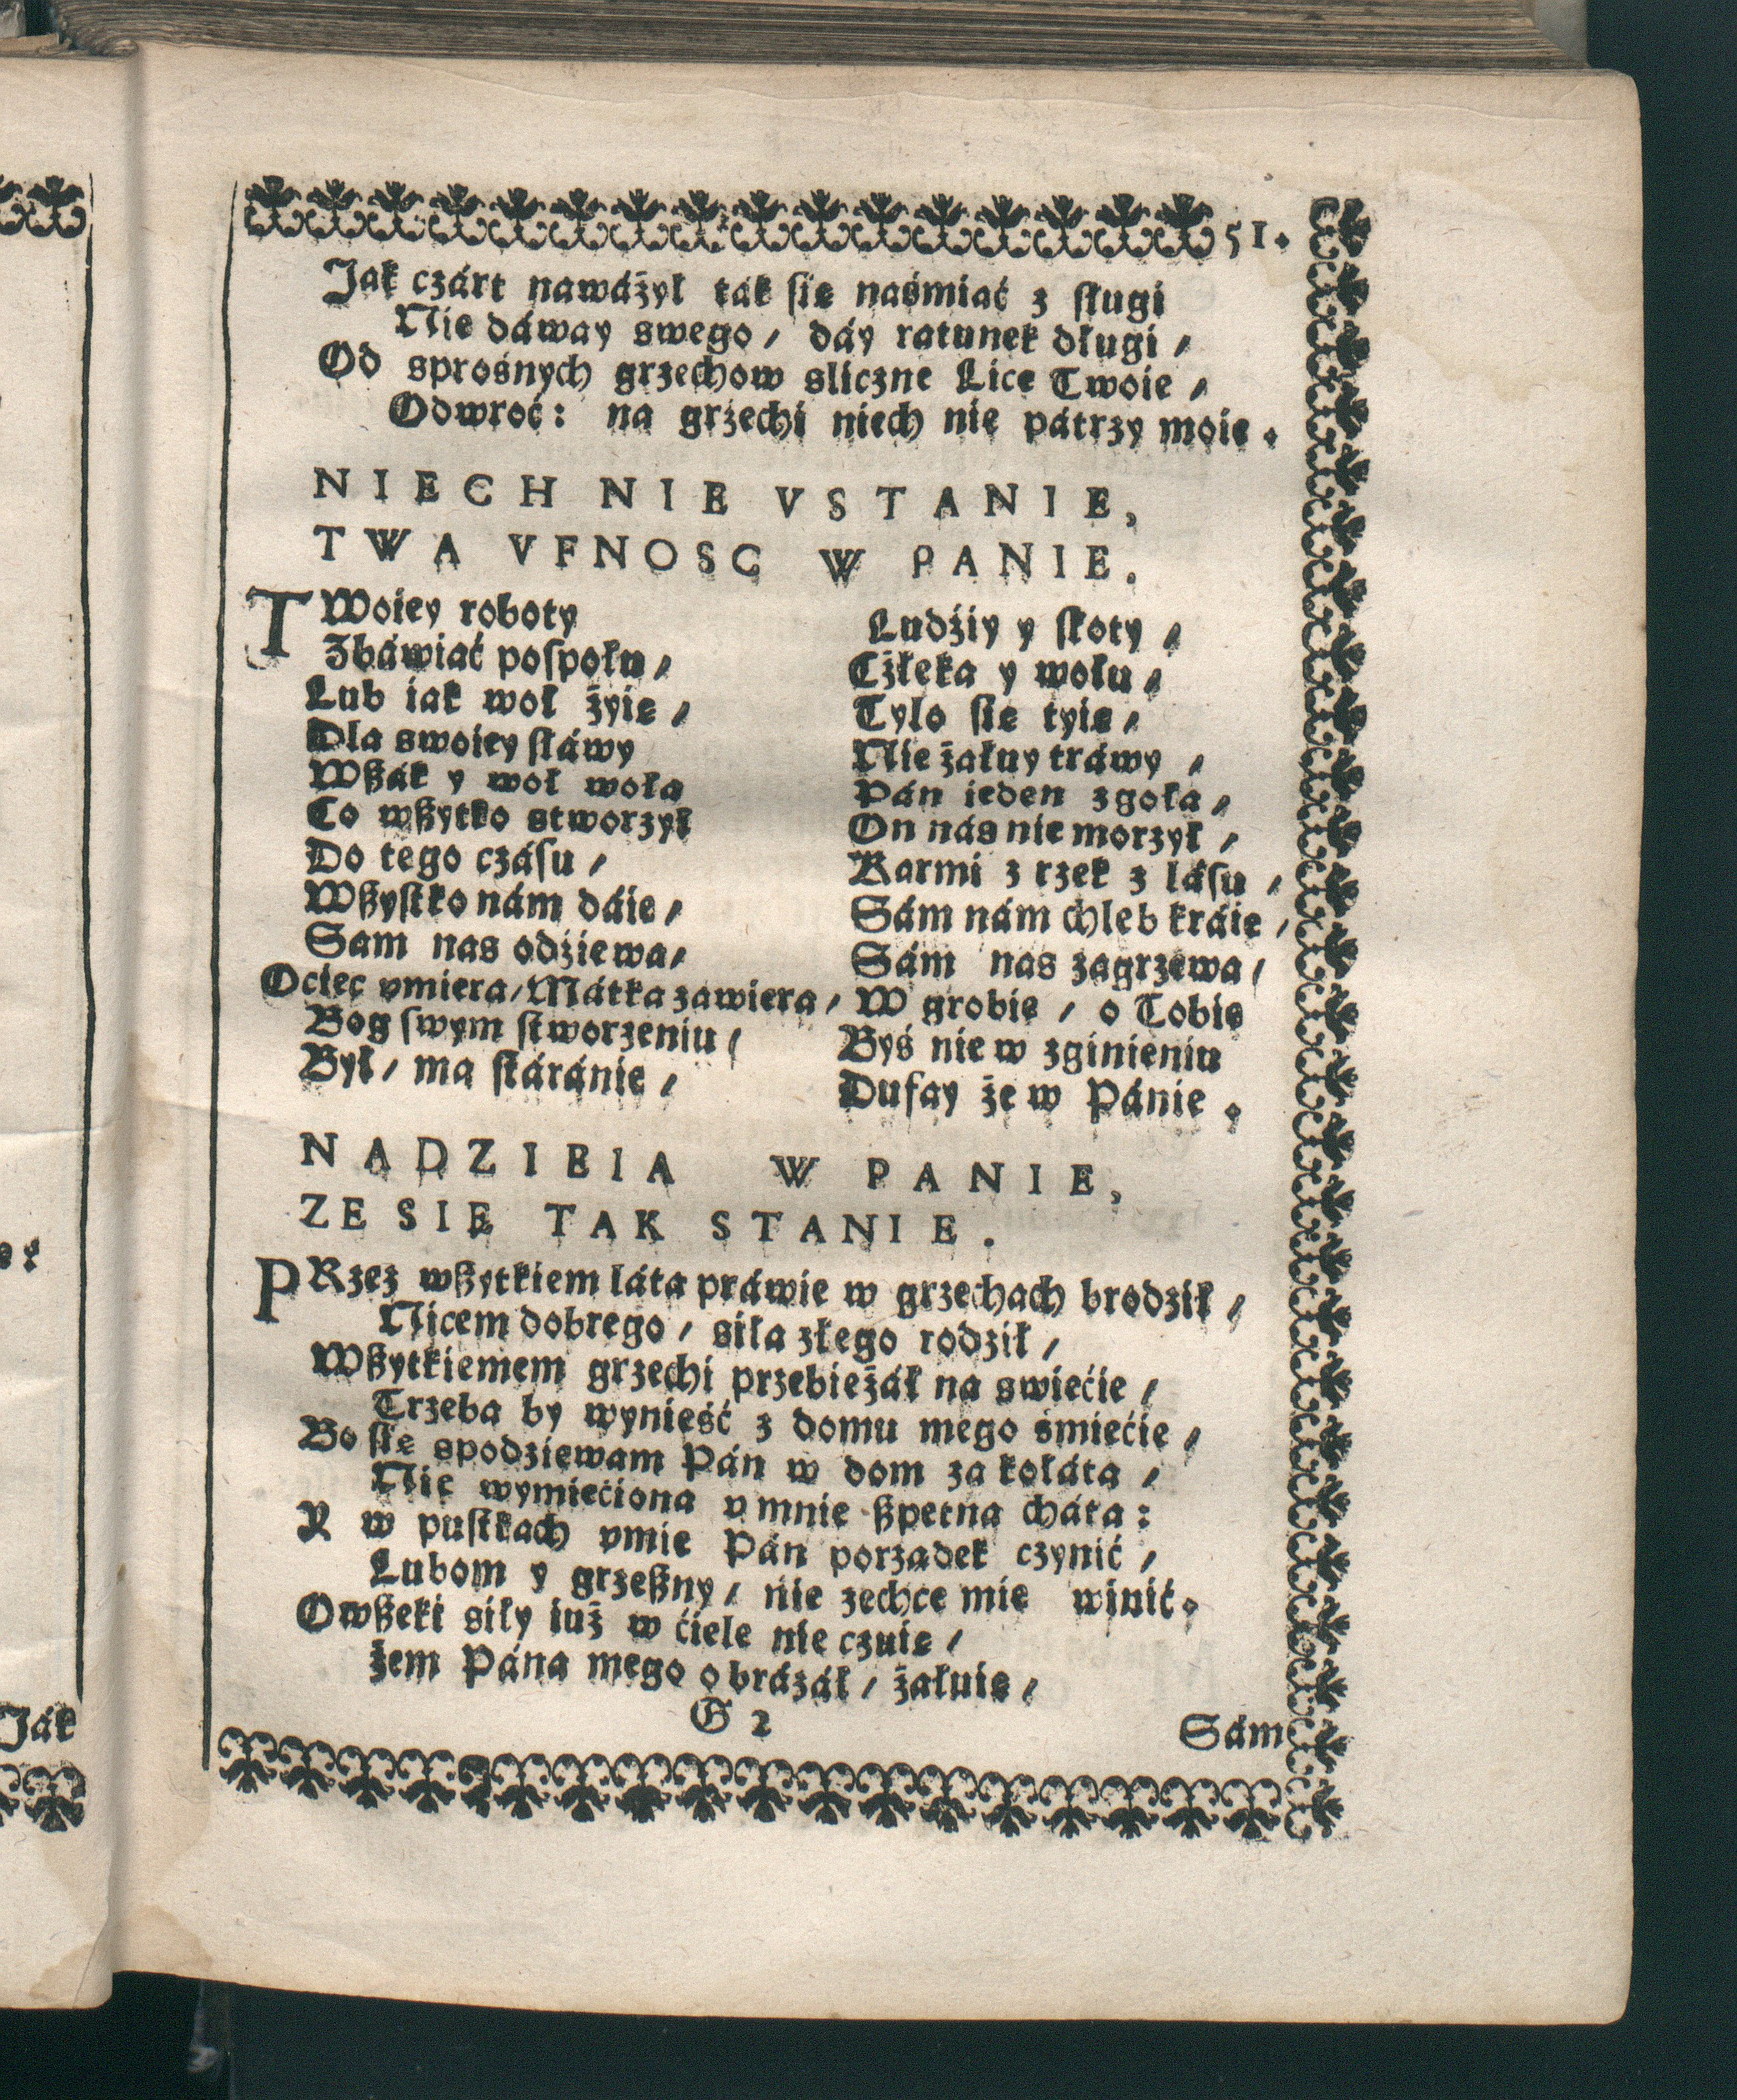 51.
Jak czárt nawáżył ták ſie naśmiać z ſługi
Nie dáway swego / dáy ratunek długi /
Od sprosnych grzechow sliczne Lice Twoie /
Odwroć: na grzechi niech nie pátrzy moie.
NIECH NIE VSTANIE,
TWA VFNOSC W PANIE.
TWoiey roboty Ludźiy y ſkoty /
Zbáwiać poſpołu / Człeka y wołu /
Lub iak woł żyie / Tylo ſie tyie /
Dla swoiey ſłáwy Nie żałuy tráwy /
Wßák y woł woła Pán ieden zgoła /
Co wßytko stworzył On nás nie morzył /
Do tego czáſu / Karmi z rzek z láſu /
Wßyſtko nám dáie / Sám nám chleb kráie /
Sam nas odźiewa / Sám nas zagrzewa /
Ociec vmiera / Mátka zawiera / W grobie / o Tobie
Bog ſwym ſtworzeniu / Byś nie w zginieniu
Był / ma ſtáránie / Dufay że w Pánie.
NADZIEIA W PANIE,
ZE SIE TAK STANIE.
PRzez wßytkiem láta práwie w grzechach brodził /
Nicem dobrego / siła złego rodził /
Wßytkiemem grzechi przebieżáł na swiećie /
Trzeba by wynieść z domu mego śmiećie /
Bo ſie spodziewam Pán w dom za koláta /
Nie wymiećiona v mnie ßpetna cháta:
Y w puſtkach vmie Pán porzadek czynić /
Lubom y grzeßny / nie zechce mie winić.
Owßeki siły iuż w ćiele nie czuie /
żem Pána mego obrázáł / żałuie /
G 2
Sám
Ják